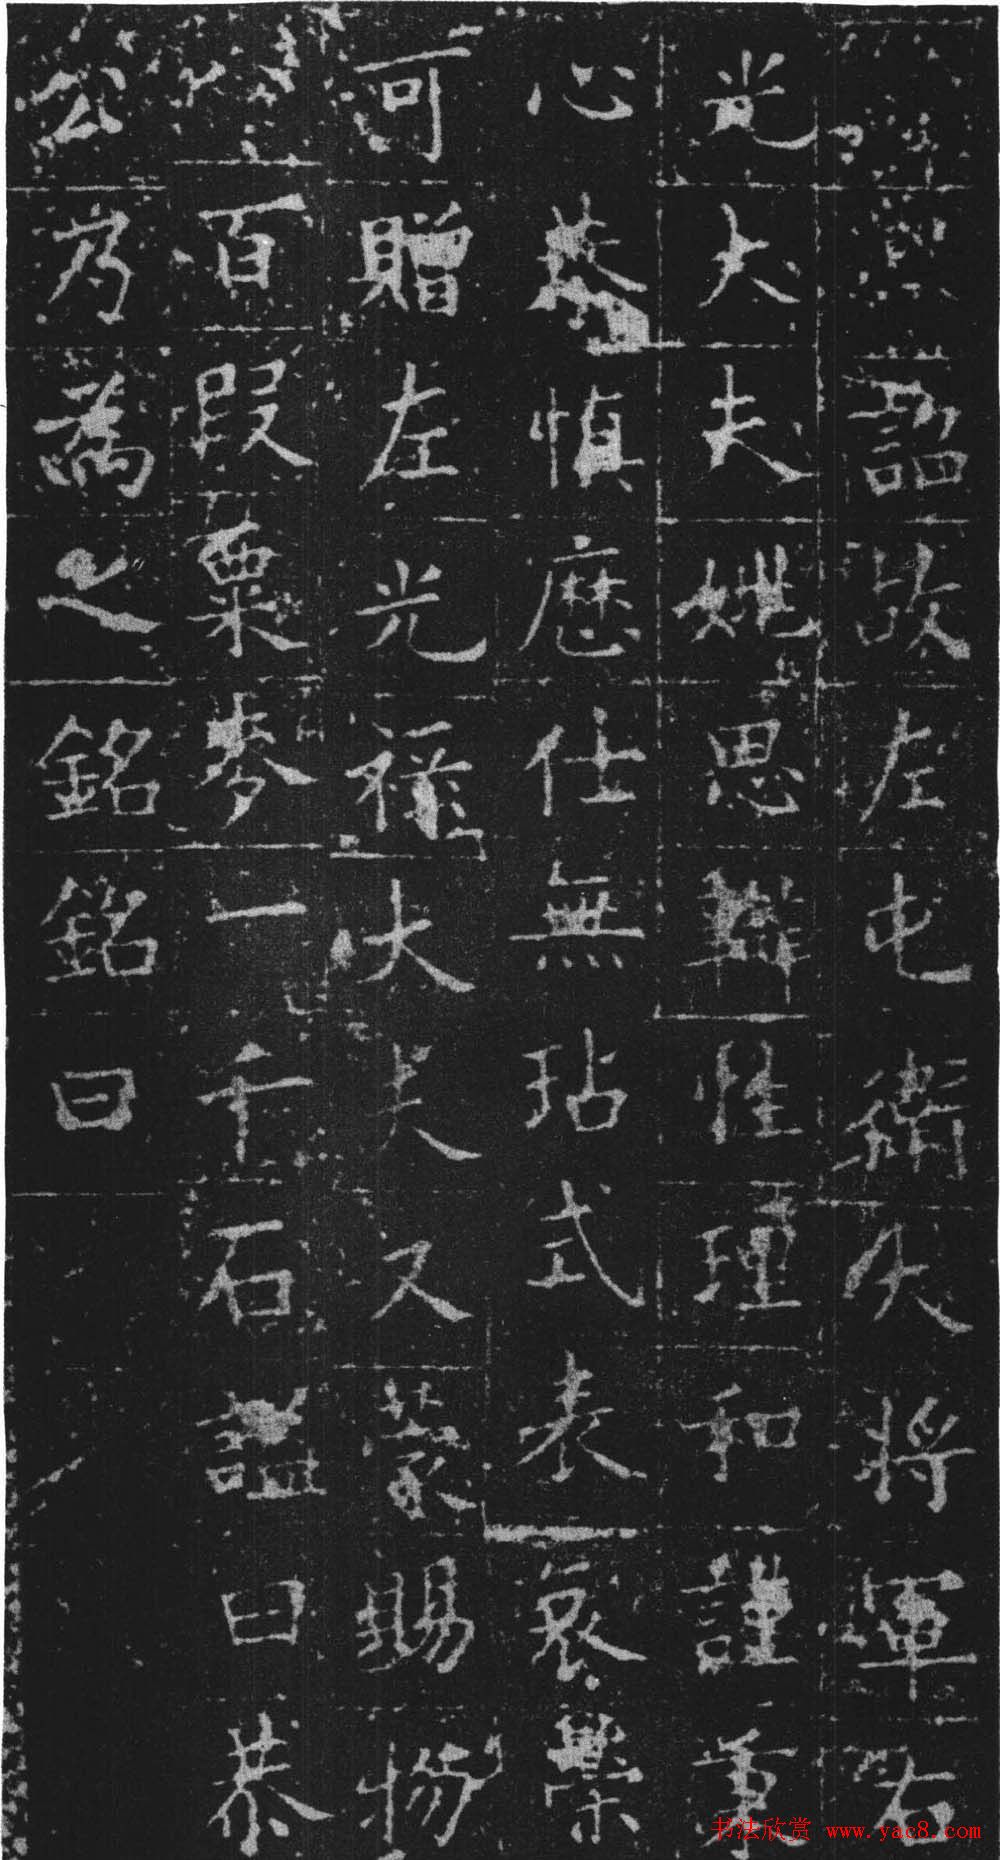 詔故左屯衛大將軍右
光大夫姚思辯性理和謹秉
心恭慎歷仕無玷式表哀榮
可贈左光祿大夫又蒙賜物
百段粟麥一千石謚曰恭
公爲之銘銘曰
书法欣赏 www.yac8.com